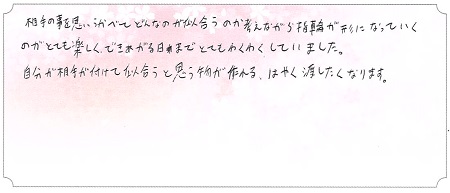 相手の事を思いうかべてどんなのが似合うのか考えながら指輪が形になっていく
のがとても楽しく、できあがる日までとてもわくわくしていました。
自分が相手が付けて似合うと思う物が作れる、はやく渡したくなります。